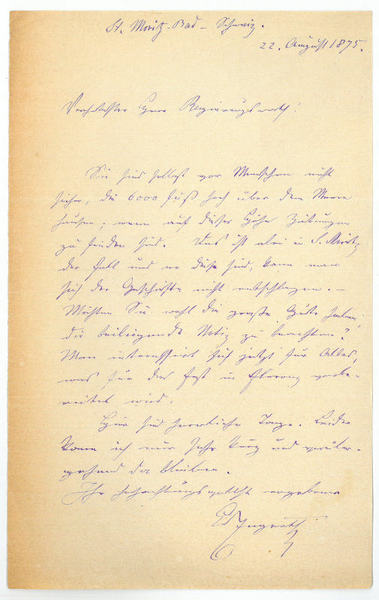 St. Moritz-Bad – Schweiz.
22. August 1875.
Verehrtester Herr Regierungsrath!
Sie sind selbst vor Menschen nicht
sicher, die 6000 Fuß hoch über dem Meere
hausen, wenn auf dieser Höhe Zeitungen
zu finden sind. Das ist aber in S. Moritz
der Fall und wo diese sind, kann man
sich der Geschäfte nicht entschlagen. –
Möchten Sie wohl die große Güte haben
die beiliegende Notiz zu beachten?
Man interessirt sich jetzt für Alles,
was für das Fest in
wird.
Hier sind herrliche Tage. Leider
kann ich nur sehr kurz und
da bleiben.
Ihr hochachtungsvollst ergebener